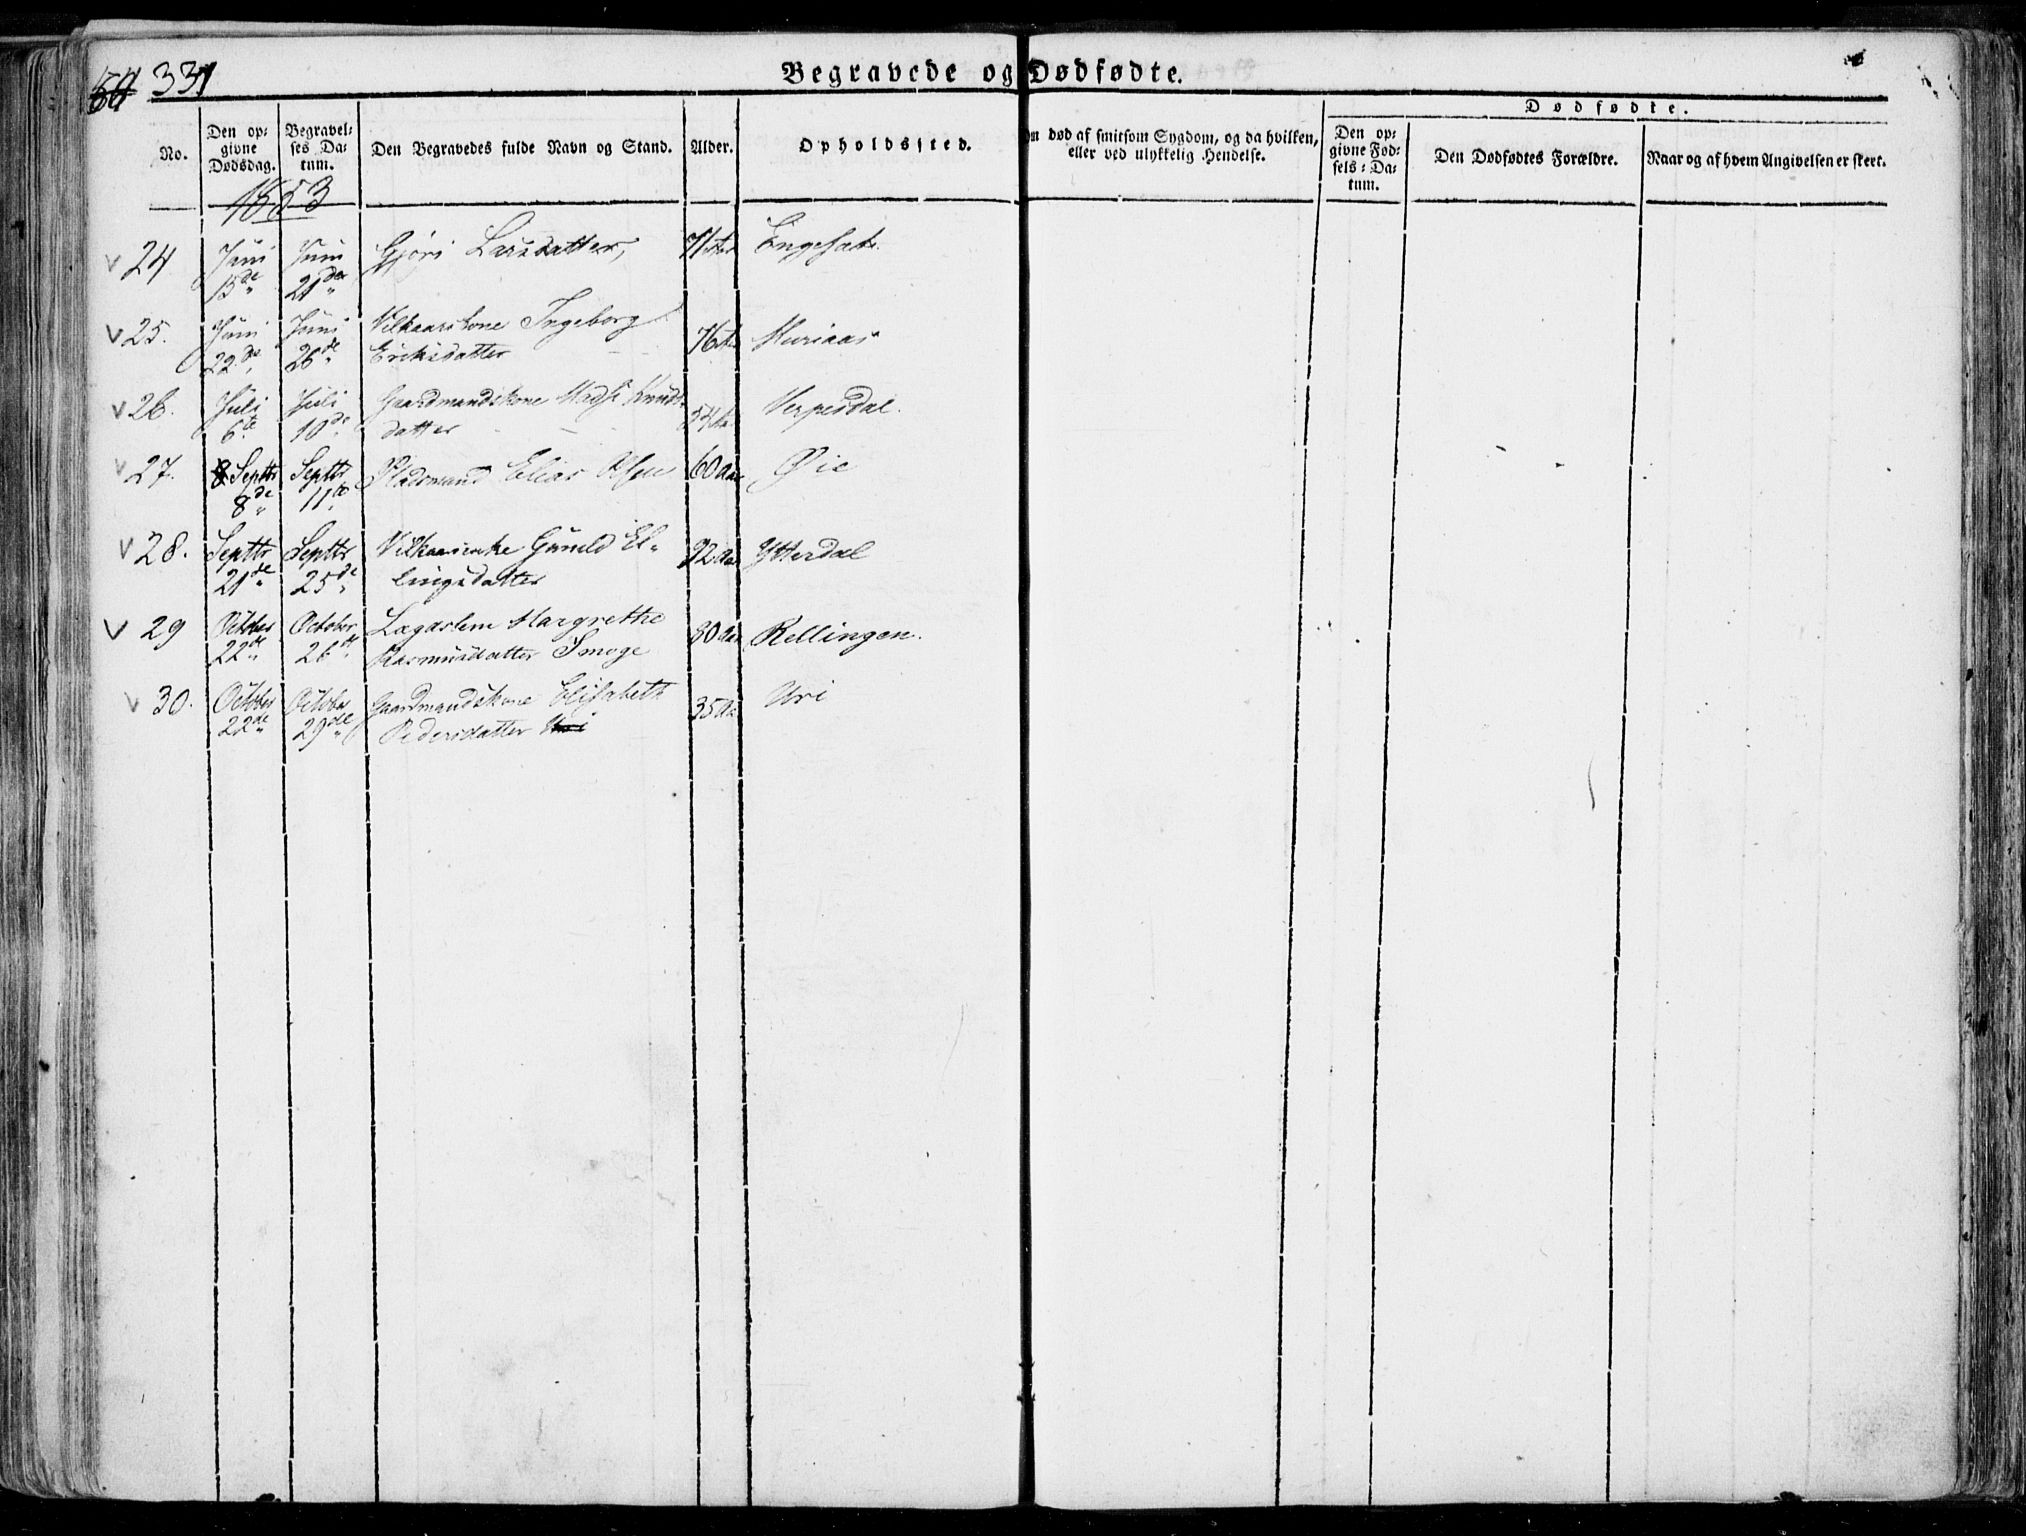 331
Begravede og Dødfødte.
No.
Den op-
givne
Dødsdag.
Begravel-
ses Da-
tum.
Den Begravedes fulde Navn og Stand.
Alder.
Opholdssted.
død af smitsom Sygdom, og da hvilken,
eller ved ulykkelig Hendelse.
Dødfødte.
Den op-
givne Fød-
sels-Da-
tum.
Den Dødfødtes Forældre.
Naar og af hvem Angivelsen er skeet.
1853
24. Juni 15de Juni 21de Gjøri Larsdatter, 71 Aar Engesæt.
25. Juni 22de Juni 26de Vilkaarskone Ingeborg
Eriksdatter 76 Aar
26. Juli 6te Juli 10de Gaardmandskone Knuds-
datter 54 Aar Verpesdal.
27. Septbr 8de Septbr 11te Pladsmand Elias Olsen 60 Aar Øie
28. Septbr 21de Septbr 25de Vilkaarsenke Gunild El-
lingsdatter 92 Aar Ytterdal
29 October 22de October 26de Lægdslem Margrethe
Rasmusdatter Smoge 80 Aar Rellingen.
30. October 22de October 29de Gaardmandskone Elisabeth
Pedersdatter Uri 35 Aar Uri